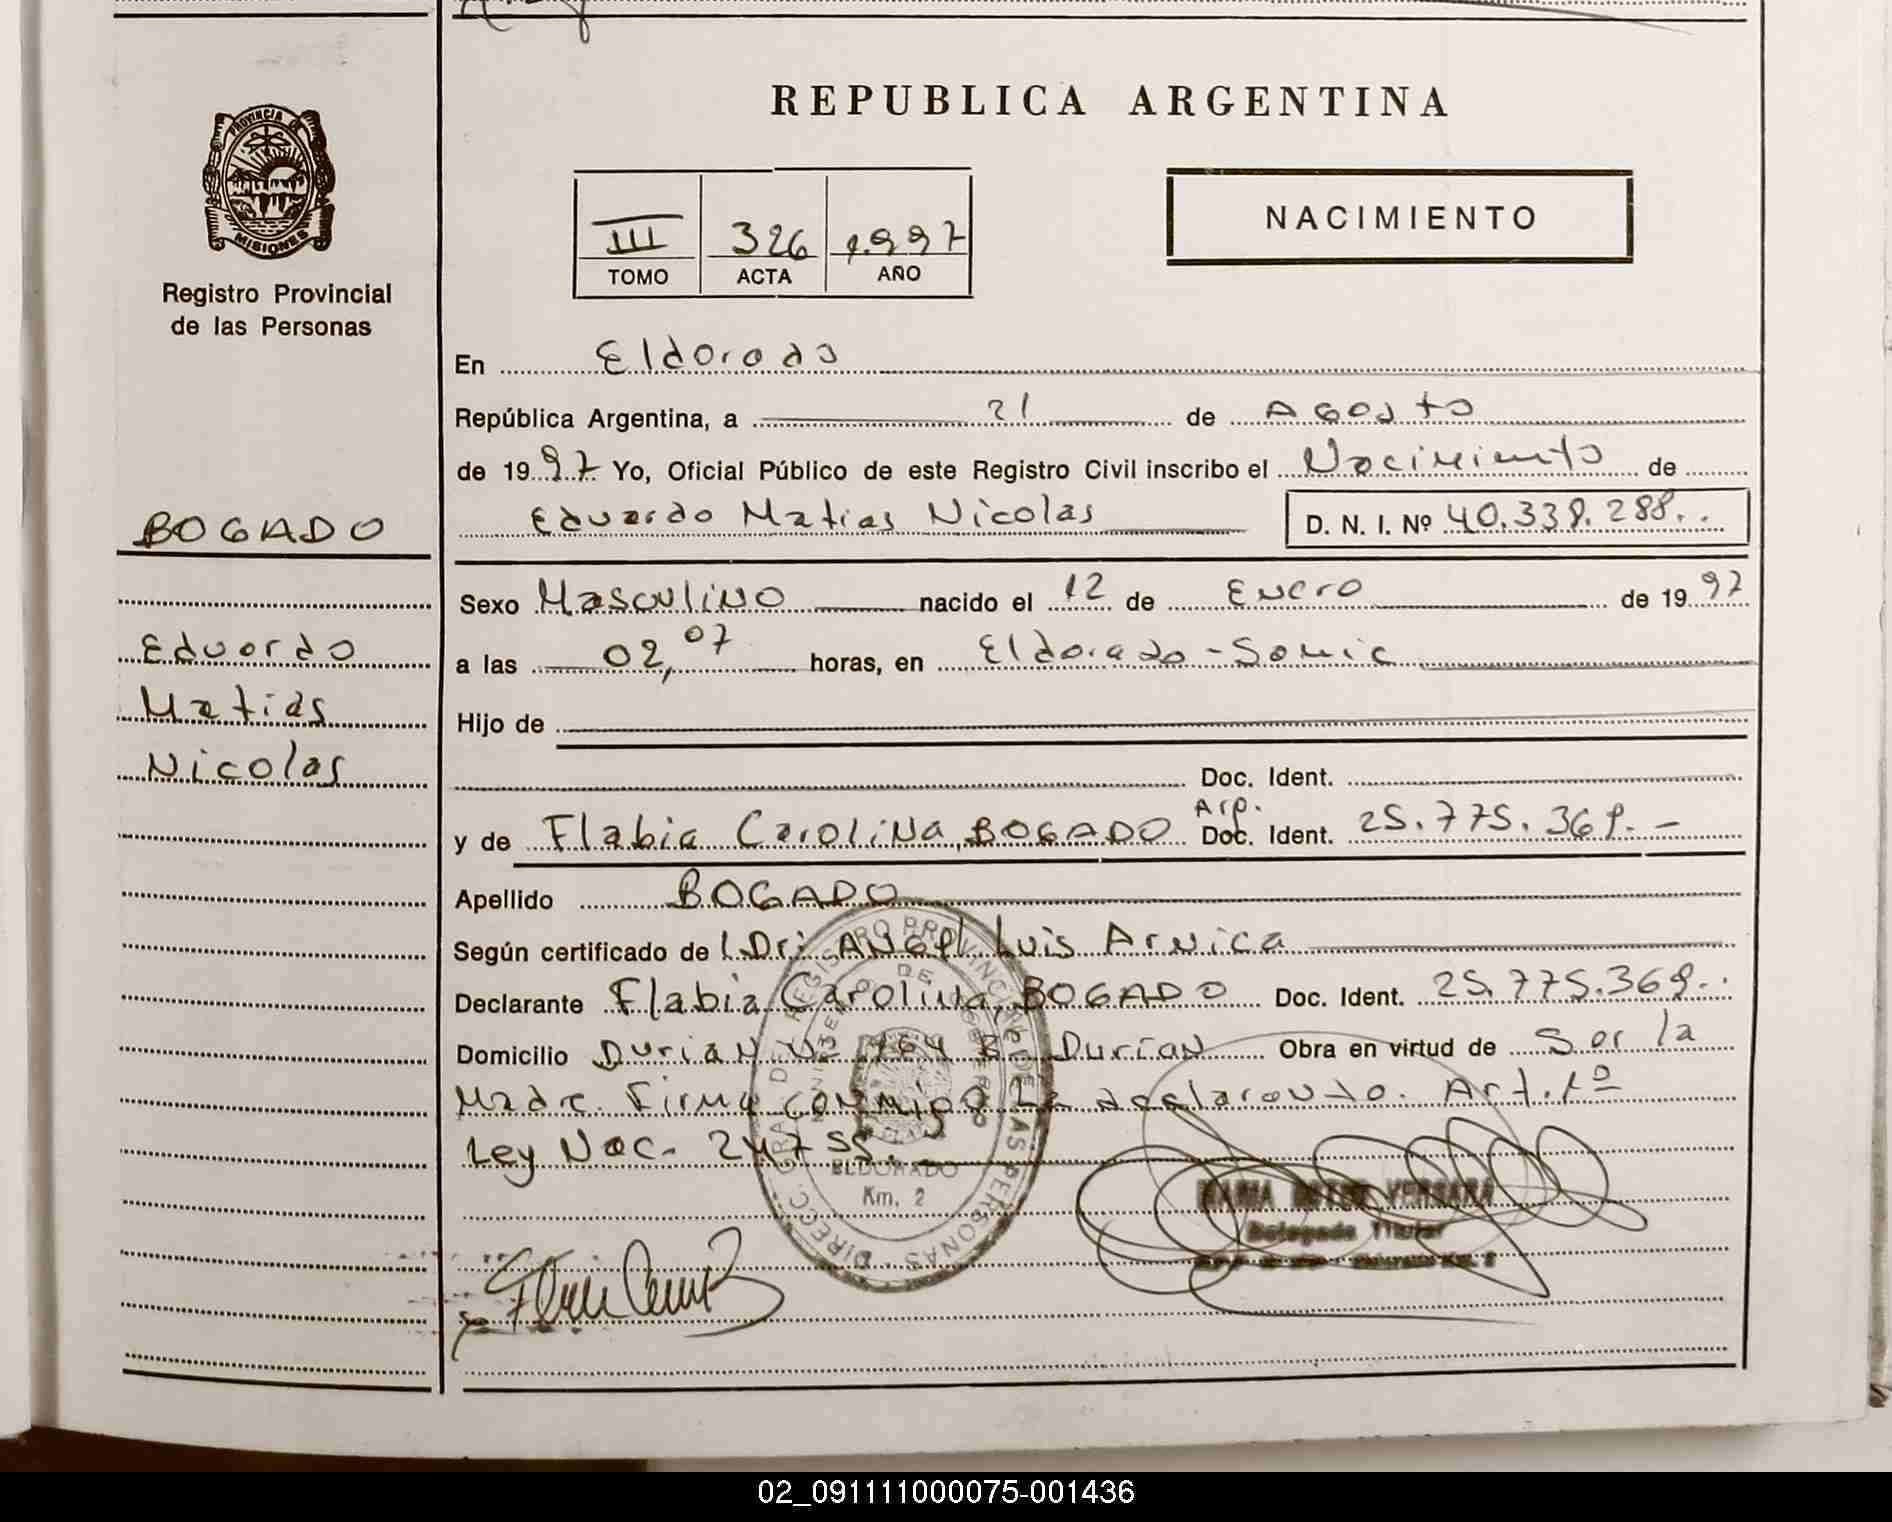 PROVINCIA DE
MISIONES
Registro Provincial
de las Personas
BOGADO
Eduardo
Matias
Nicolas
REPUBLICA ARGENTINA
III 326 1.997
TOMO ACTA AÑO
NACIMIENTO
En Eldorado
República Argentina, a 21 de Agosto
de 1997 Yo, Oficial Público de este Registro Civil inscribo el Nacimiento de
Eduardo Matias Nicolas D. N. I. Nº 40.339.288.
Sexo Masculino nacido el 12 de Enero de 1997
a las 02,07 horas, en Eldorado - Samic
Hijo de
Doc. Ident.
Arg.
y de Flabia Carolina, BOGADO Doc. Ident. 25.775.369.-
Apellido BOGADO
Según certificado de Dr: Angel Luis Arnica
Declarante Flabia Carolina, BOGADO Doc. Ident. 25.775.369.
Domicilio Durian Nº 764 Bº Durian Obra en virtud de Ser la
Madre. Firma conmigo La declarante. Art. 1º
Ley Nac. 24755.
DIRECC. GRAL. DE REGISTRO PROVINCIAL DE LAS PERSONAS
MINISTERIO DE GOBIERNO
ELDORADO
Km. 2
VERGARA
Delegada Titular
02_091111000075-001436